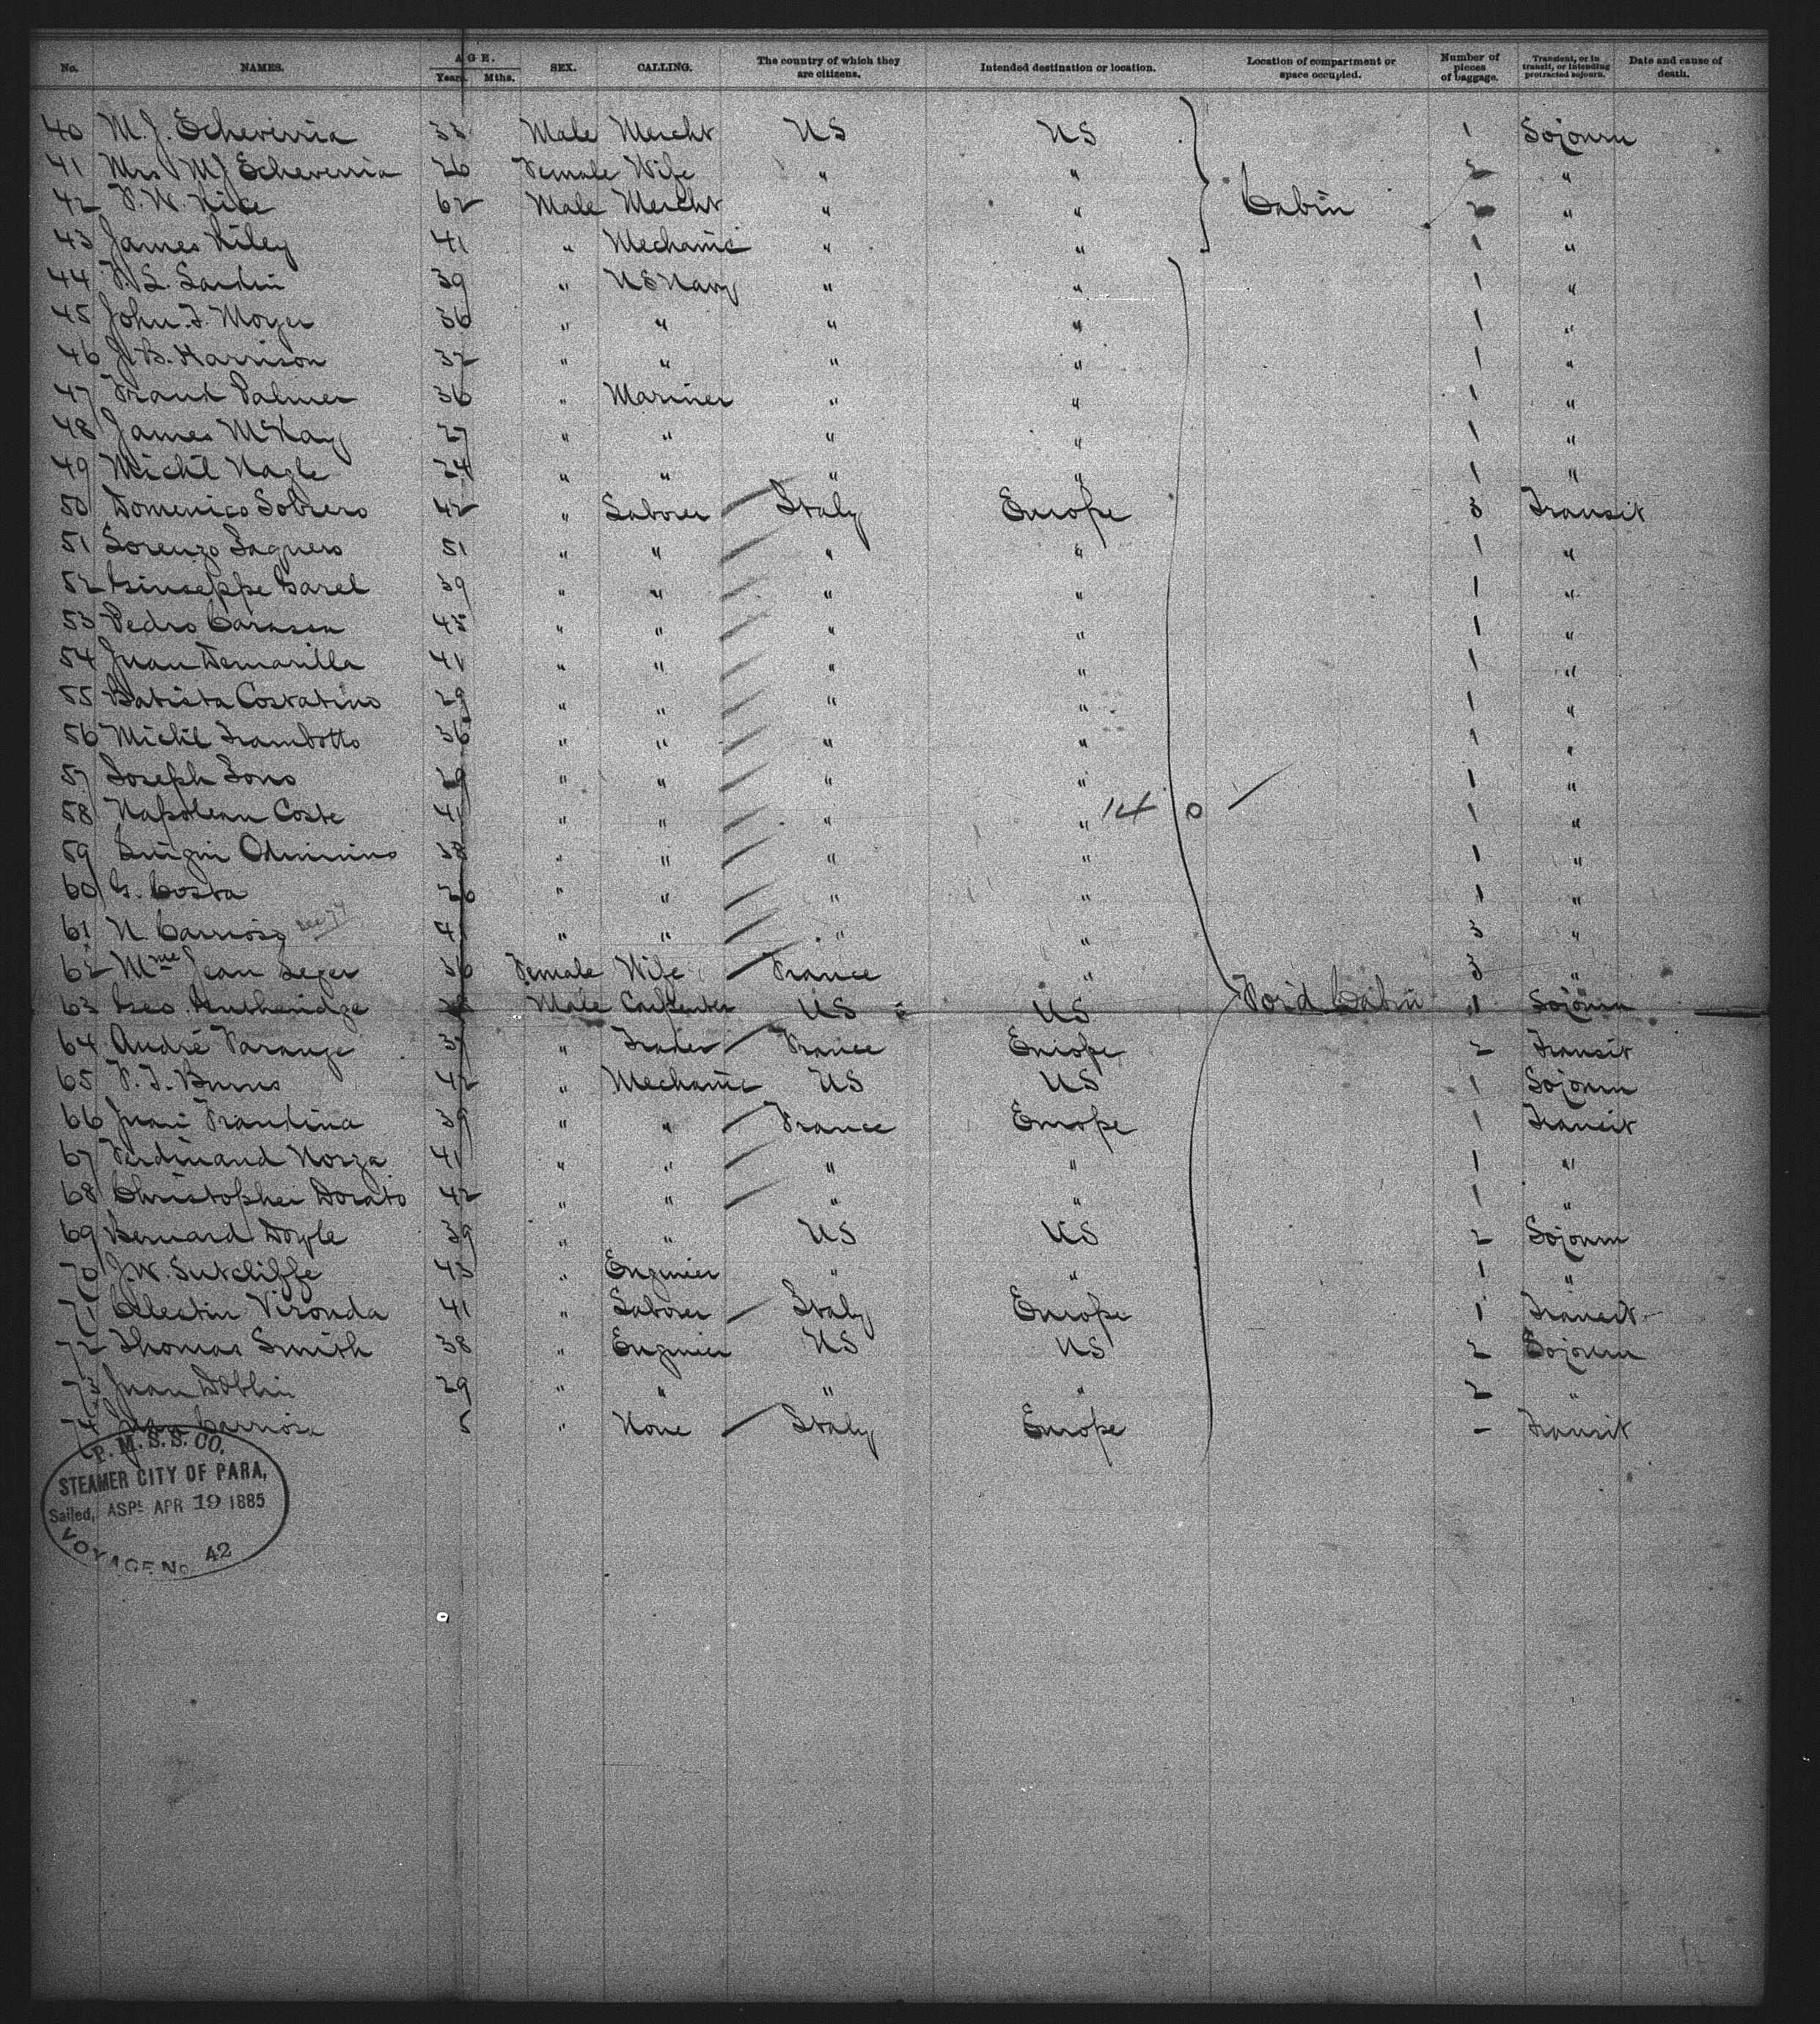 No. NAMES. AGE. Years. Mths. SEX. CALLING. The country of which they are citizens. Intended destination or location. Location of compartment or space occupied. Number of pieces of baggage. Transient, or in transit, or intending protracted sojourn. Date and cause of death.
40 M. J. Echeverria 33 Male Mercht US US 1 Sojourn
41 Mrs M J Echeverria 26 Female Wife " " 2 "
42 62 Male Mercht " " Cabin 2 "
43 James Riley 41 " Mechanic " " 1 "
44 39 " US Navy " " 1 "
45 John 36 " " " " 1 "
46 J. B. Harrison 32 " " " " 1 "
47 Frank Palmer 36 " Mariner " " 1 "
48 James McKay 27 " " " " 1 "
49 Michl Nagle 24 " " " " 1 "
50 Domenico Sobrero 42 " Laborer Italy Europe 3 Transit
51 Lorenzo 51 " " " " 1 "
52 Giuseppe 39 " " " " 1 "
53 Pedro 45 " " " " 1 "
54 Juan Demarilla 41 " " " " 1 "
55 Batista Costatino 29 " " " " 1 "
56 Michl 36 " " " " 1 "
57 Joseph " " " " 1 "
58 Napolean Coste 41 " " " " 140 1 "
59 Luigui 38 " " " " 1 "
60 G. Costa 26 " " " " 1 "
61 N. Carriosa " " " " 3 "
62 Mme Jean Leger 36 Female Wife France " 3 "
63 Geo. Male Carpenter US US Forˈd Cabin 1 Sojourn
64 André " Trader France Europe 2 Transit
65 Burns 42 " Mechanic US US 1 Sojourn
66 39 " " France Europe 1 Transit
67 Ferdinand Norza 41 " " " " 1 "
68 Christopher Dorato 42 " " " " 1 "
69 Bernard Doyle 39 " " US US 2 Sojourn
70 J. W. Sutcliffe 43 " Engineer " " 1 "
71 Celestin Vironda 41 " Laborer Italy Europe 1 Transit
72 Thomas Smith 38 " Engineer US US 2 Sojourn
73 Juan Doblin 29 " " " " 2 "
74 Carriosa 5 " None Italy Europe - Transit
P. M. S. S. CO.
STEAMER CITY OF PARA,
Sailed, ASPL APR 19 1885
VOYAGE No. 42